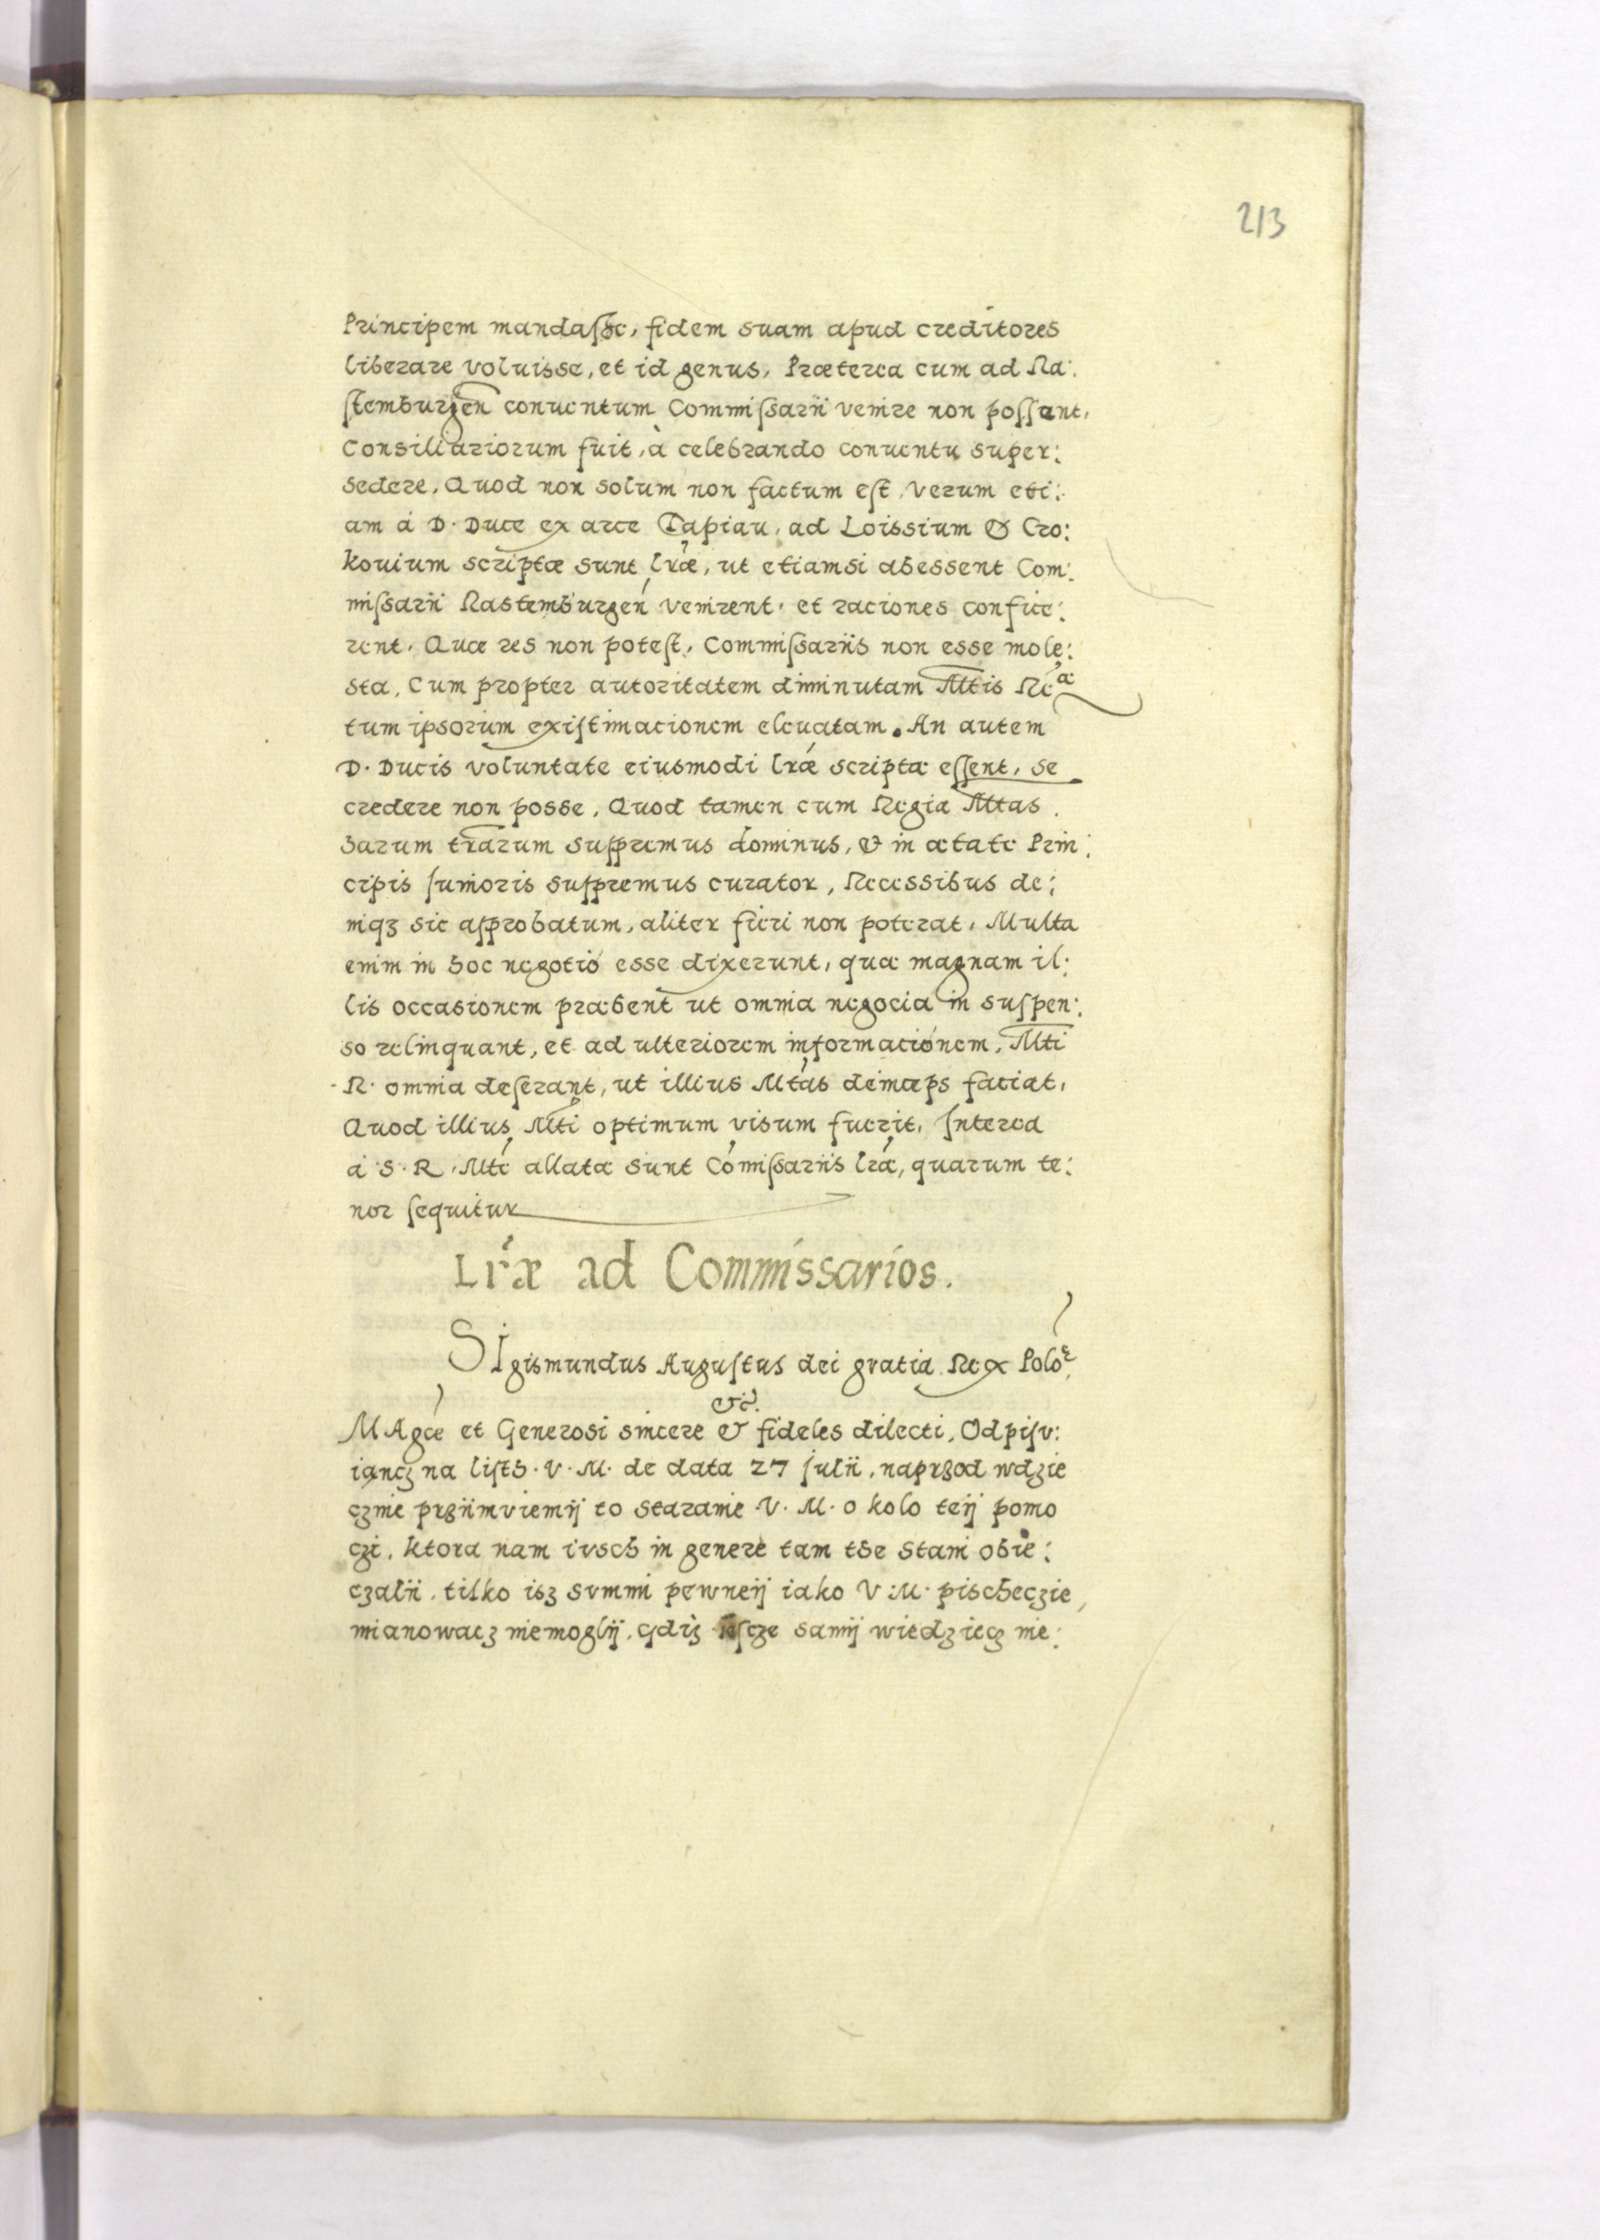 213
Principem mandasse, fidem suam apud creditores
liberare voluisse, et id genus, Præterea cum ad Ra:
stemburgen conuentum Commissarii venire non possent,
Consiliariorum fuit, à celebrando conuentu super:
sedere, Quod non solum non factum est, verum eti:
am á D. Duce ex arce Tapiau, ad Loissium & Cro:
kouium scriptæ sunt lræ, ut etiamsi abessent Com:
missarii Rastemburgen venirent, et raciones confice:
rent, Quæ res non potest, Commissariis non esse mole:
sta, Cum propter autoritatem diminutam Mtis Reæ
tum ipsorum existimacionem eleuatam. An autem
D. Ducis voluntate eiusmodi lræ scriptæ essent, se
credere non posse, Quod tamen cum Regia Mtas
harum trarum supremus dominus, & in ætate Prin:
cipis Junioris supremus curator, Recessibus de:
niqȝ sic approbatum, aliter fieri non poterat, Multa
enim in hoc negotio esse dixerunt, quæ magnam il:
lis occasionem præbent ut omnia negocia in suspen:
so relinquant, et ad ulteriorem informacionem, Mti
R. omnia deferant, ut illius Mtas deinceps faciat,
Quod illius Mti optimum visum fuerit, Interea
á S. R. Mte allatæ sunt Comissariis lræ, quarum te:
nor sequitur
Lræ ad Commissarios.
SIgismundus Augustus dei gratia Rex Polo
&c.
MAgce et Generosi sincere & fideles dilecti, Odpisv:
iancz na listh. V. M. de data 27 Julii, naprzod wdzie
cznie prziimviemij to staranie V. M. o kolo teij pomo
czi, ktora nam ivsch in genere tam the stani obie:
czalii, tilko isz svmmi pewneij iako V. M. pischeczie
mianowacz niemoglij, gdiz iescze samij wiedziecz nie: